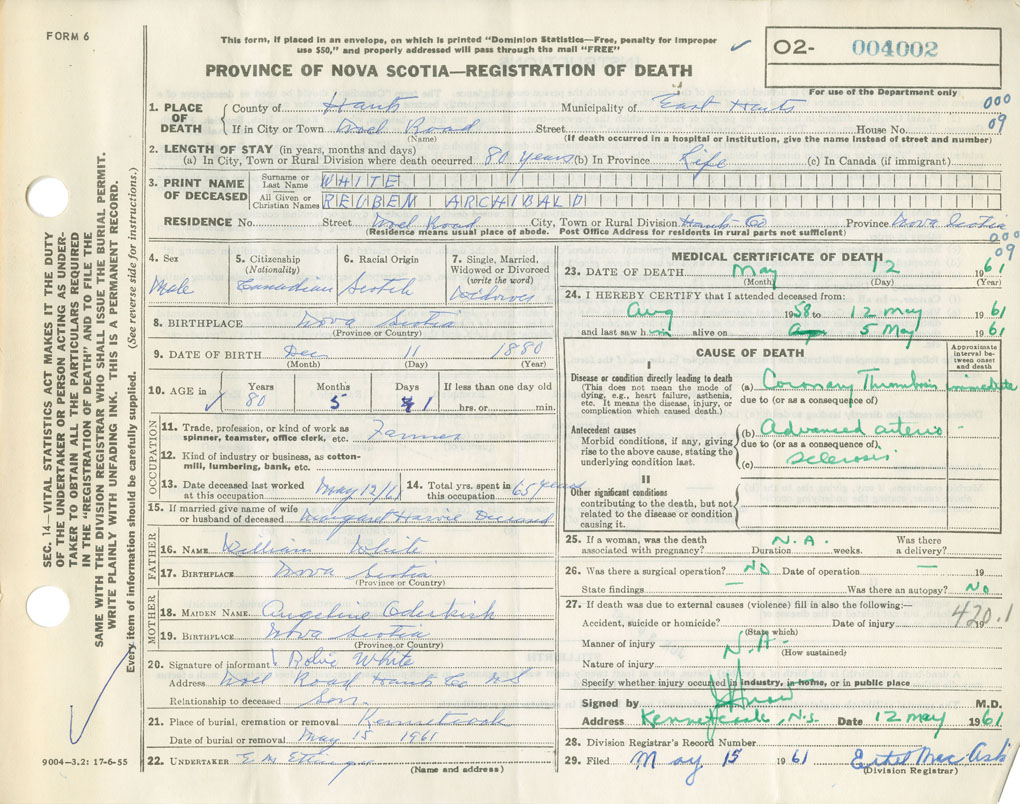 FORM 6
This form, if placed in an envelope, on which is printed "Dominion Statistics—Free, penalty for improper
use $50," and properly addressed will pass through the mail "FREE"
O2- 004002
PROVINCE OF NOVA SCOTIA—REGISTRATION OF DEATH
For use of the Department only
1. PLACE OF DEATH
County of Hants Municipality of East Hants 000
If in City or Town Noel Road Street House No. 09
(Name) (If death occurred in a hospital or institution, give the name instead of street and number)
2. LENGTH OF STAY (in years, months and days)
(a) In City, Town or Rural Division where death occurred 80 years (b) In Province Life (c) In Canada (if immigrant)
3. PRINT NAME OF DECEASED
Surname or Last Name WHITE
All Given or Christian Names REUBEN ARCHIBALD
RESIDENCE No. Street Noel Road City, Town or Rural Division Hants Co Province Nova Scotia
(Residence means usual place of abode. Post Office Address for residents in rural parts not sufficient)
000
09
4. Sex
Male
5. Citizenship
(Nationality)
Canadian
6. Racial Origin
Scotch
7. Single, Married,
Widowed or Divorced
(write the word)
8. BIRTHPLACE Nova Scotia
(Province or Country)
9. DATE OF BIRTH Dec 11 1880
(Month) (Day) (Year)
10. AGE in
Years Months Days If less than one day old
80 5 1 hrs. or min.
OCCUPATION
11. Trade, profession, or kind of work as
spinner, teamster, office clerk, etc. Farmer
12. Kind of industry or business, as cotton-
mill, lumbering, bank, etc.
13. Date deceased last worked
at this occupation May 12/61
14. Total yrs. spent in
this occupation 65 years
15. If married give name of wife
or husband of deceased Margaret
FATHER
16. NAME William White
17. BIRTHPLACE Nova Scotia
(Province or Country)
MOTHER
18. MAIDEN NAME Angeline Oderkirk
19. BIRTHPLACE Nova Scotia
(Province or Country)
20. Signature of informant Robie White
Address Noel Road Hants Co N S
Relationship to deceased Son
21. Place of burial, cremation or removal Kennetcook
Date of burial or removal May 15 1961
22. UNDERTAKER E. M. Ettinger
(Name and address)
MEDICAL CERTIFICATE OF DEATH
23. DATE OF DEATH May 12 1961
(Month) (Day) (Year)
24. I HEREBY CERTIFY that I attended deceased from:
Aug 1958 to 12 May 1961
and last saw him alive on 5 May 1961
CAUSE OF DEATH
Approximate
interval be-
tween onset
and death
I
Disease or condition directly leading to death
(This does not mean the mode of
dying, e.g., heart failure, asthenia,
etc. It means the disease, injury, or
complication which caused death.)
(a) Coronary Thrombosis immediate
due to (or as a consequence of)
Antecedent causes
Morbid conditions, if any, giving
rise to the above cause, stating the
underlying condition last.
(b) Advanced arterio -
due to (or as a consequence of)
(c) sclerosis
II
Other significant conditions
contributing to the death, but not
related to the disease or condition
causing it.
25. If a woman, was the death
associated with pregnancy? N.A. Duration weeks. Was there
a delivery?
26. Was there a surgical operation? NO Date of operation — 19
State findings — Was there an autopsy? NO
27. If death was due to external causes (violence) fill in also the following:—
Accident, suicide or homicide? Date of injury 19
(State which)
420.1
Manner of injury N.A.
(How sustained)
Nature of injury
Specify whether injury occurred in industry, in home, or in public place
Signed by M.D.
Address Kennetcook, N.S. Date 12 May 1961
28. Division Registrar's Record Number
29. Filed May 15 1961 Ethel Mac Ask
(Division Registrar)
SEC. 14—VITAL STATISTICS ACT MAKES IT THE DUTY
OF THE UNDERTAKER OR PERSON ACTING AS UNDER-
TAKER TO OBTAIN ALL THE PARTICULARS REQUIRED
IN THE "REGISTRATION OF DEATH" AND TO FILE THE
SAME WITH THE DIVISION REGISTRAR WHO SHALL ISSUE THE BURIAL PERMIT.
WRITE PLAINLY WITH UNFADING INK. THIS IS A PERMANENT RECORD.
Every item of information should be carefully supplied. (See reverse side for instructions.)
9004—3.2: 17-6-55